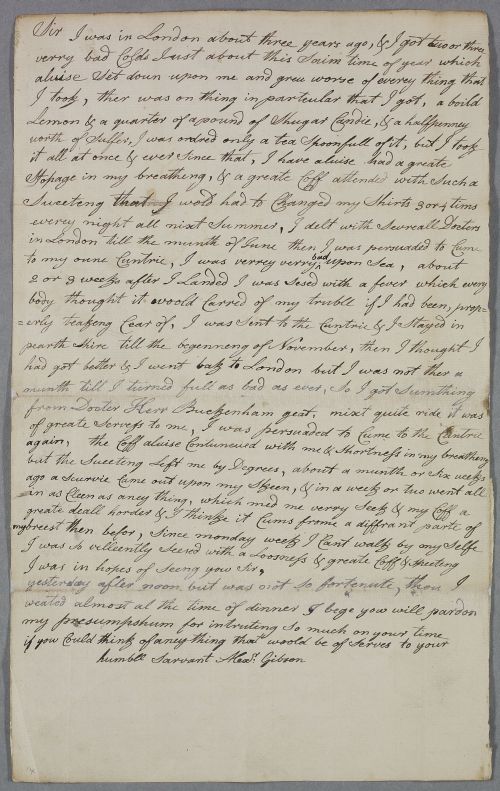 Sir I was in London about three years ago, & I got two or three
verry bad Colds Just about this Saim time of year which
aluise Set doun upon me and greu worse of everey thing that
I took, ther was on thing in particular that I got, a boild
Lemon & a quarter of a pound of Shugar Candie, & a halfpenney
worth of Sulfer, I was ordred only a tea Spoonfull of it, but I took
it all at once & ever Since that, I have aluise had a greate
Stopage in my breathing, & a greate Coff attended with Such a
Sueeteng that I wold had to Changed my Shirts 3 or 4 tims
everey night all nixt Summer, I delt with Sevreall Docters
in London till the munth of June then I was persuaded to Cume
to my oune Cuntrie, I was verrey verry bad upon Sea, about
2 or 3 weeks after I Landed I was Sesed with a fever which every
body thought it woold Carred of my trubble if I had been, prop=
=erly teakeng Cear of, I was Sent to the Cuntrie & I Stayed in
pearth Shire till the begenneng of November, then I thought I
had got better & I went bak to London but I was not ther a
munth till I turned full as bad as ever, So I got Sumthing
from Docter Herr Buckenham geat. mixt quite ride it was
of greate Servess to me, I was persuaded to Cume to the Cuntrie
again, the Coff aluise Contunewed with me & Shortness in my breatheng
but the Sueeteng Left me by Degrees, about a munth or Six weeks
ago a Scurvie Came out upon my Skeen, & in a week or tuo went all
in as Cleen as aney thing, which med me verry Seek & my Coff a
greate deall horder & I thinke it Cums frome a diffrant parte of
my breest then befor, Since monday week I Cant walk by my Selfe
I was So velicently Seesed with a Loosness & greate Coff & Speeting
I was in hopes of Seeng you Sir,
yesterday after noon but was not so fortenute, thou I
weated almost al the time of dinner I bege yow will pardon
my presumpshum for intruting So much on your time
if you Could think of aney thing that woold be of Serves to your
humble Sarvant Gibson